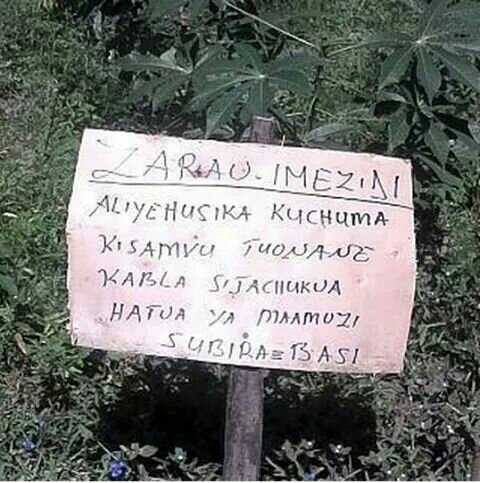 ZARAU-IMEZIDI
ALIYEHUSIKA KUCHUMA
KISAMVU TUONANE
KABLA SIJACHUKUA
HATUA YA MAAMUZI
SUBIRA=BASI